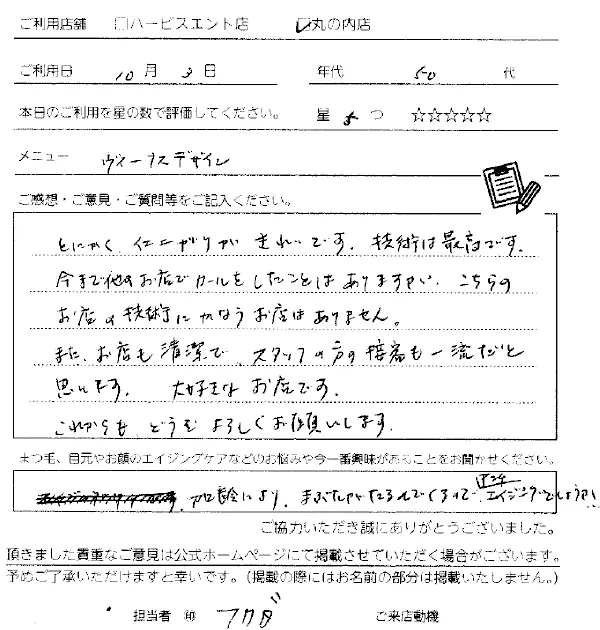 ご利用店舗 □ハービスエント店 ☑丸の内店
ご利用日 10月3日 年代 50代
本日のご利用を星の数で評価してください。 星 5つ ☆☆☆☆☆
メニュー ヴィーナスデザイン
ご感想・ご意見・ご質問等をご記入ください。
とにかく、仕上がりがきれいです。技術は最高です。
今まで他のお店でカールをしたことはありますが、こちらの
お店の技術にかなうお店はありません。
また、お店も清潔で、スタッフの方の接客も一流だと
思います。 大好きなお店です。
これからも、どうぞよろしくお願いします。
まつ毛、目元やお顔のエイジングケアなどのお悩みや今一番興味があることをお聞かせください。
加齢により、まぶたがたるんでくるので、エイジングでしょうか
ご協力いただき誠にありがとうございました。
頂きました貴重なご意見は公式ホームページにて掲載させていただく場合がございます。
予めご了承いただけますと幸いです。（掲載の際にはお名前の部分は掲載いたしません。）
担当者 ㊞ フクダ ご来店動機